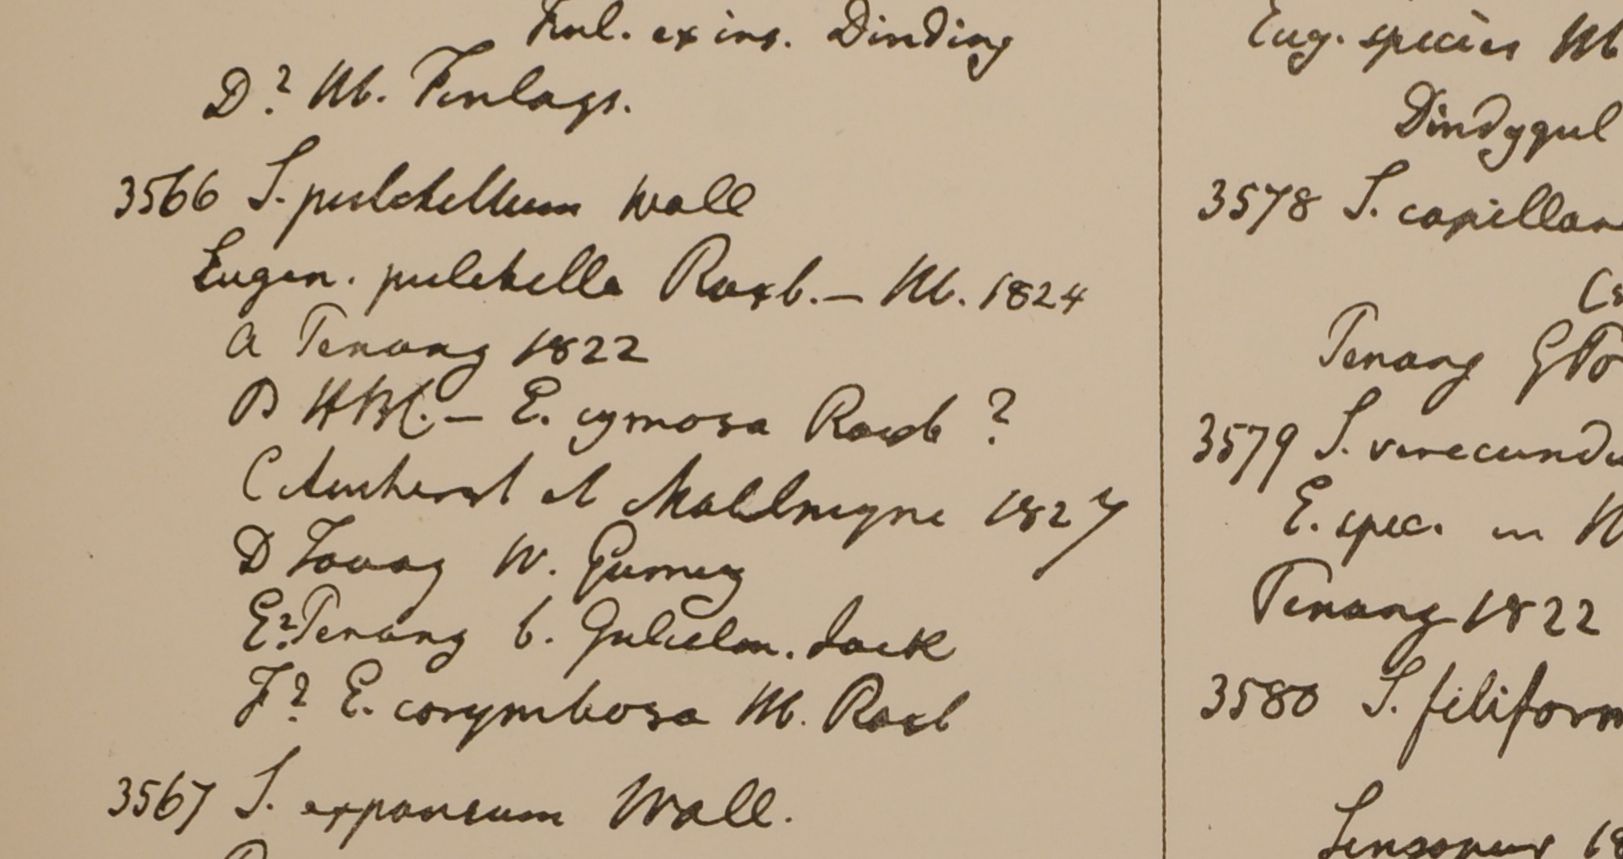 Finl. ex ins. Dinding
D? Hb. Finlays.
3566 S. pulchellum Wall
Eugen. pulchella Roxb. — Hb. 1824
a Penang 1822
B HBC. — E. cymosa Roxb ?
C Amherst et Moalmeyne 1827
D Tavoy W. Gomez
E? Penang b. Gulielm. Jack
F? E. corymbosa Hb. Roxb
3567 S. expansum Wall.
Eug. species Hb
Dindygul
3578 S. capillar
Penang G Po
3579 S. verecundu
E. spec. in H
Penang 1822
3580 S. filiform
Singapur 18